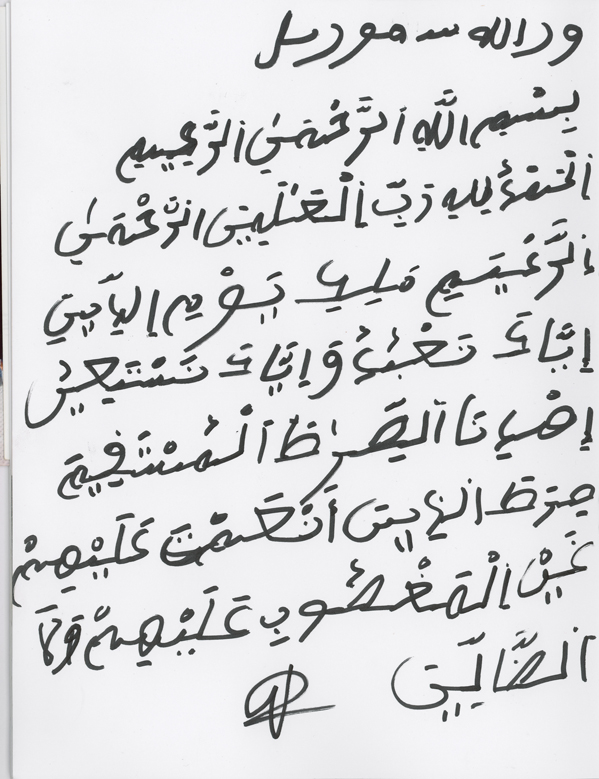 بِسْمِ اللَّهِ الرَّحْمَٰنِ الرَّحِيمِ
الْحَمْدُ لِلهِ رَبِّ الْعَٰلَمِينَ الرَّحْمَٰنِ
الرَّحِيمِ مَلِكِ يَوْمِ الدِّينِ
إِيَّاكَ نَعْبُدُ وَإِيَّاكَ نَسْتَعِينُ
إِهْدِنَا الصِّرَٰطَ الْمُسْتَقِيمَ
صِرَٰطَ الذِينَ أَنْعَمْتَ عَلَيْهِمْ
غَيْرِ الْمَغْضُوبِ عَلَيْهِمْ وَلَا
الضَّالِّينَ